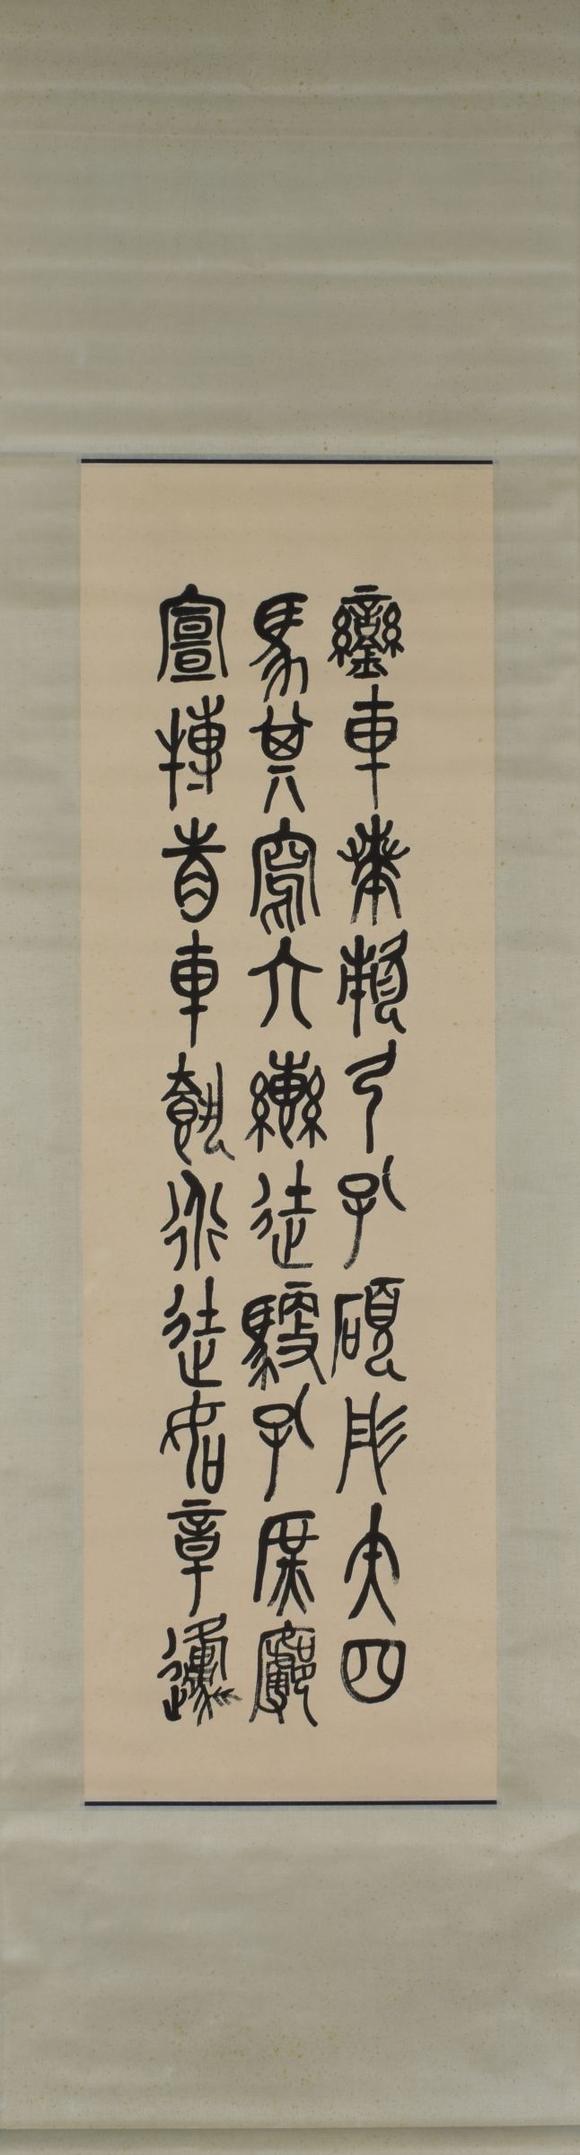 鑾車𠦪弓孔碩彤矢四
馬其寫六轡徒馭孔庶廓
宣搏眚車行徒如章邍